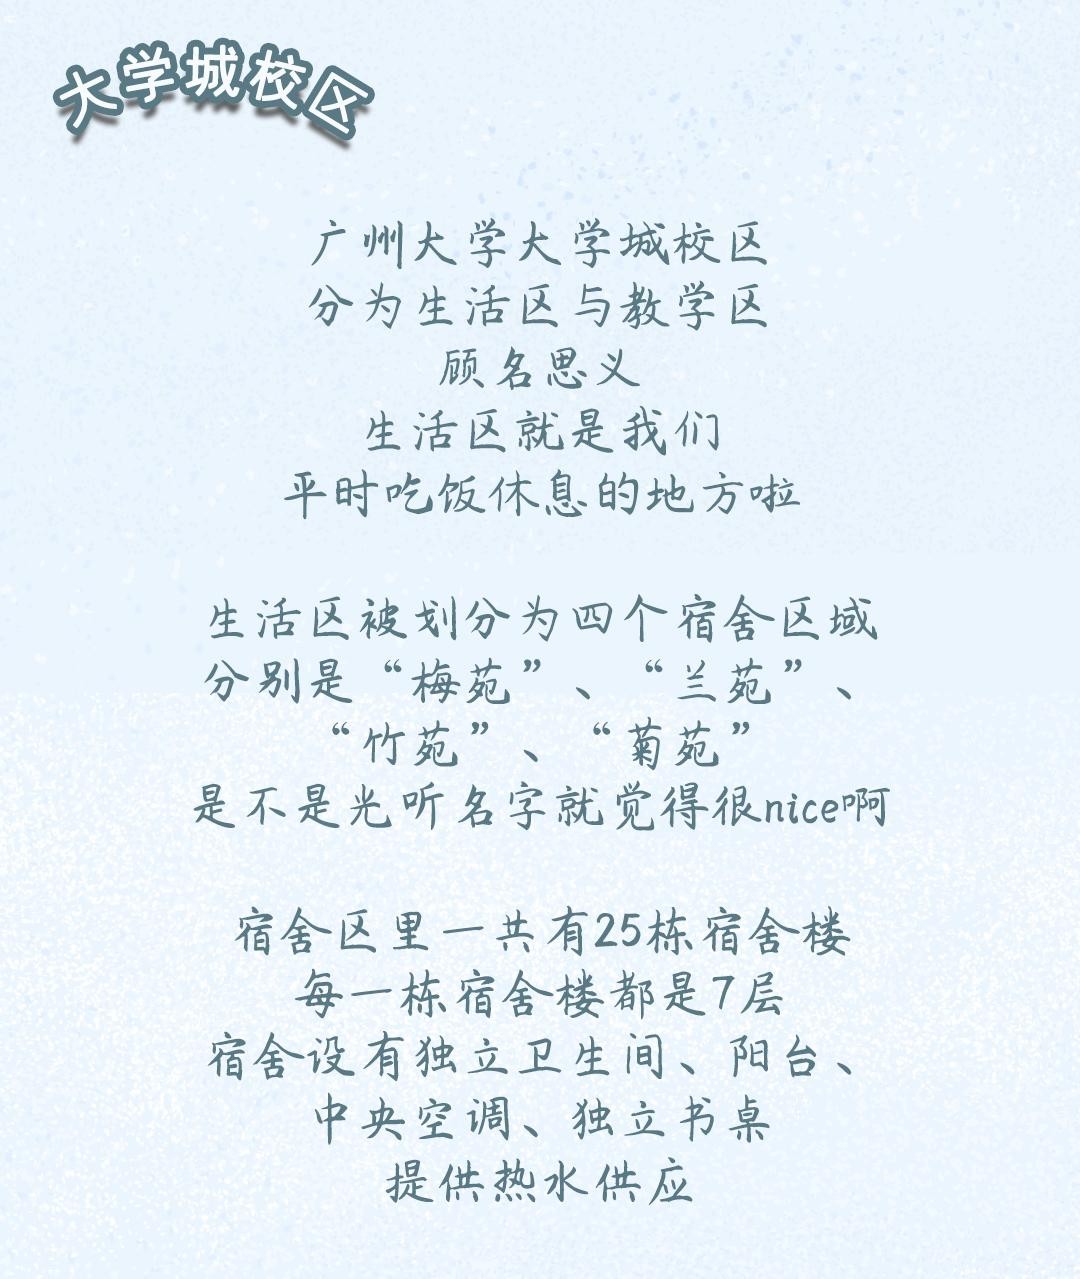 大学城校区
广州大学大学城校区
分为生活区与教学区
顾名思义
生活区就是我们
平时吃饭休息的地方啦
生活区被划分为四个宿舍区域
分别是“梅苑”、“兰苑”、
“竹苑”、“菊苑”
是不是光听名字就觉得很nice啊
宿舍区里一共有25栋宿舍楼
每一栋宿舍楼都是7层
宿舍设有独立卫生间、阳台、
中央空调、独立书桌
提供热水供应